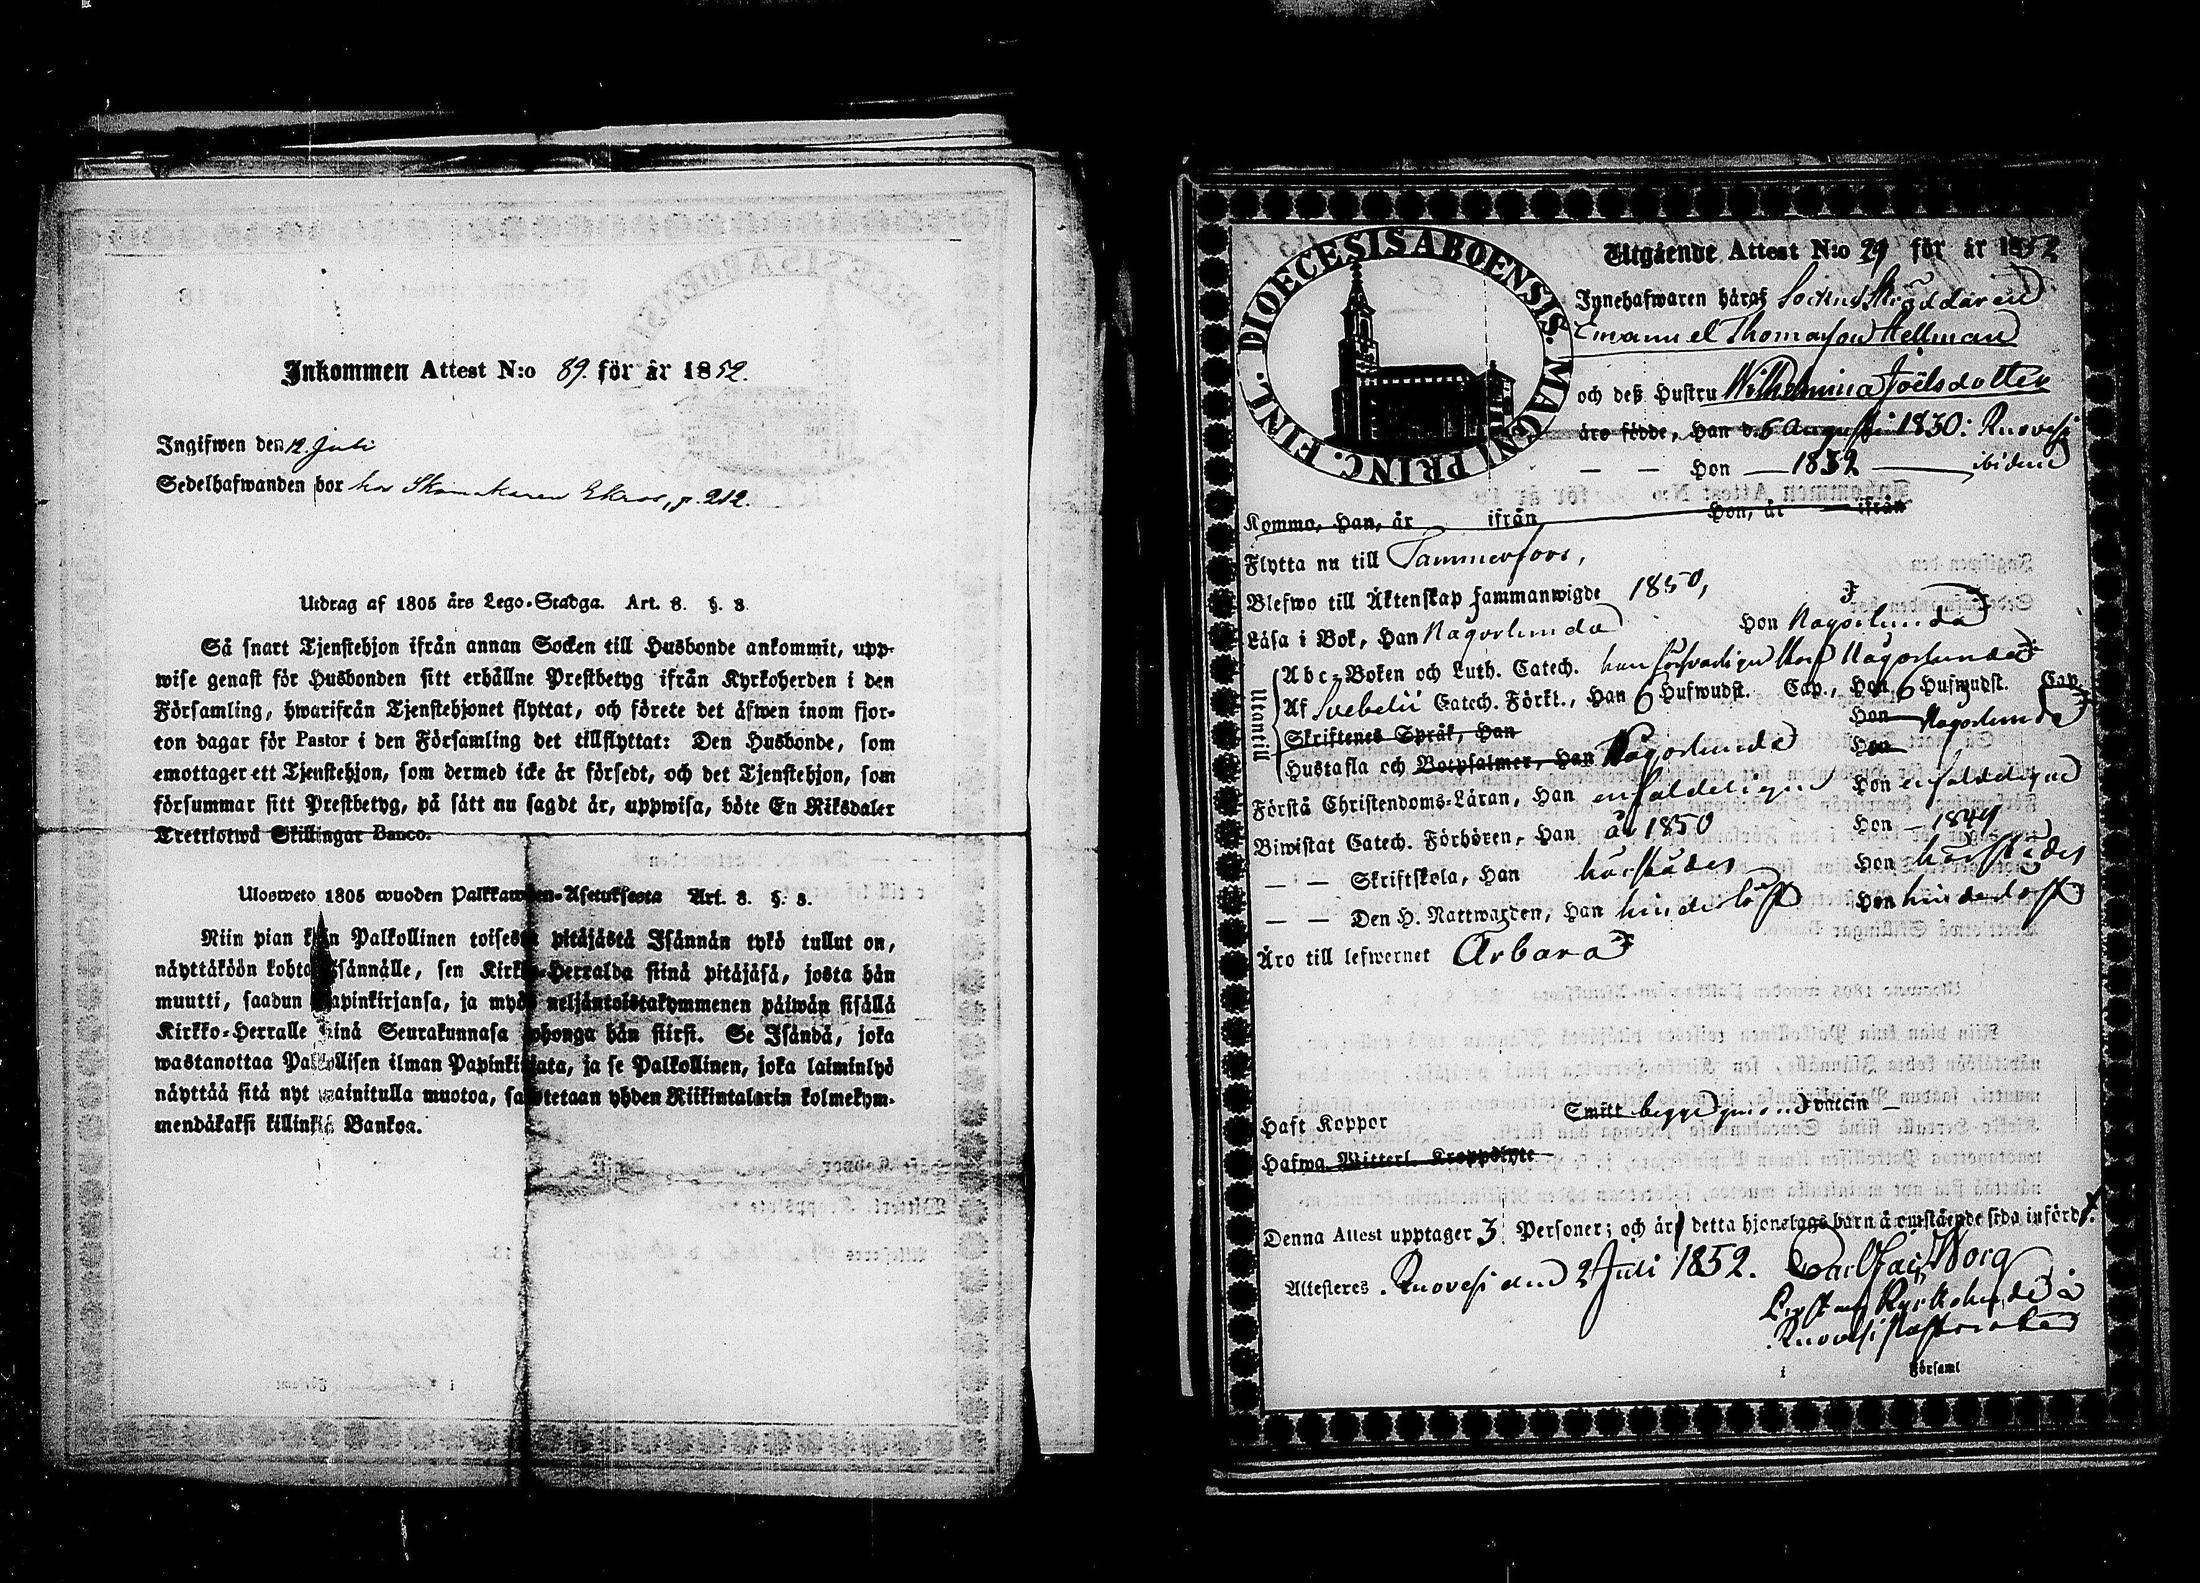 Inkommen Attest N:o 89. för år 1852.
Ingifwen den 12. Juli
Sedelhafwanden bor hos Skomakaren Ekroos, p. 212.
Utdrag af 1805 års Lego-Stadga. Art. 8. §. 8.
Så snart Tjenstehjon ifrån annan Socken till Husbonde ankommit, upp-
wise genast för Husbonden sitt erhållne Prestbetyg ifrån Kyrkoherden i den
Församling, hwarifrån Tjenstehjonet flyttat, och förete det äfwen inom fjor-
ton dagar för Pastor i den Församling det tillflyttat: Den Husbonde, som
emottager ett Tjenstehjon, som dermed icke är försedt, och det Tjenstehjon, som
försummar sitt Prestbetyg, på sätt nu sagdt är, uppwisa, böte En Riksdaler
Trettiotwå Skillingar Banco.
Ulosweto 1805 wuoden Palkkawäen-Asetuksesta Art. 8. §. 8.
Niin pian kuin Palkollinen toisesta pitäjästä Isännän tykö tullut on,
näyttäköön kohta Isännälle, sen Kirkko-Herralda siinä pitäjäsä, josta hän
muutti, saadun Papinkirjansa, ja myös neljäntoistakymmenen päiwän sisällä
Kirkko-Herralle siinä Seurakunnasa johonga hän siirsi. Se Isändä, joka
wastanottaa Palkollisen ilman Papinkirjata, ja se Palkollinen, joka laiminlyö
näyttää sitä nyt mainitulla muotoa, sakotetaan yhden Riikintalarin kolmekym-
mendäkaksi killinkiä Bankoa.
DIOECESIS ABOENSIS. MAGNI PRINC. FINL.
Utgående Attest N:o 29 för år 1852
Innehafwaren häraf Sockne Skräddaren
Emanuel Thomasson Hellman
och deß Hustru Wilhelmina Joëlsdotter
äro födde, Han d. 6 Augusti 1830: Ruovesi
— — Hon — 1832 — ibidem
Kommo, Han, år ifrån Hon, år ifrån
Flytta nu till Tammerfors,
Blefwo till Äktenskap sammanwigde 1850,
Läsa i Bok, Han någorlunda Hon någorlunda
Utantill
Abc-Boken och Luth. Catech. han försvarligen Hon någorlunda
Af Svebelii Catech. Förkl., Han 6 Hufwudst. Cap., Hon 6 Hufwudst. Cap.
Skriftenes Språk, Han Hon någorlunda
Hustafla och Botpsalmer, Han någorlunda Hon
Förstå Christendoms-Läran, Han enfaldeligen Hon enfaldeligen
Biwistat Catech. Förhören, Han år 1850 Hon — 1849
— — Skriftskola, Han härstädes Hon härstädes
— — Den H. Nattwarden, Han hinderlöst Hon hinderlöst
Äro till lefwernet Ärbara
Haft Koppor Smitt begge genom vaccin —
Hafwa Witterl. Kroppslyte
Denna Attest upptager 3 Personer; och är detta hjonelags barn å omstående sida infördt.
Attesteres. Ruovesi den 2 Juli 1852. Carl Borg
Prost och Kyrkoherde i
Ruovesi Pastorat
i Församl